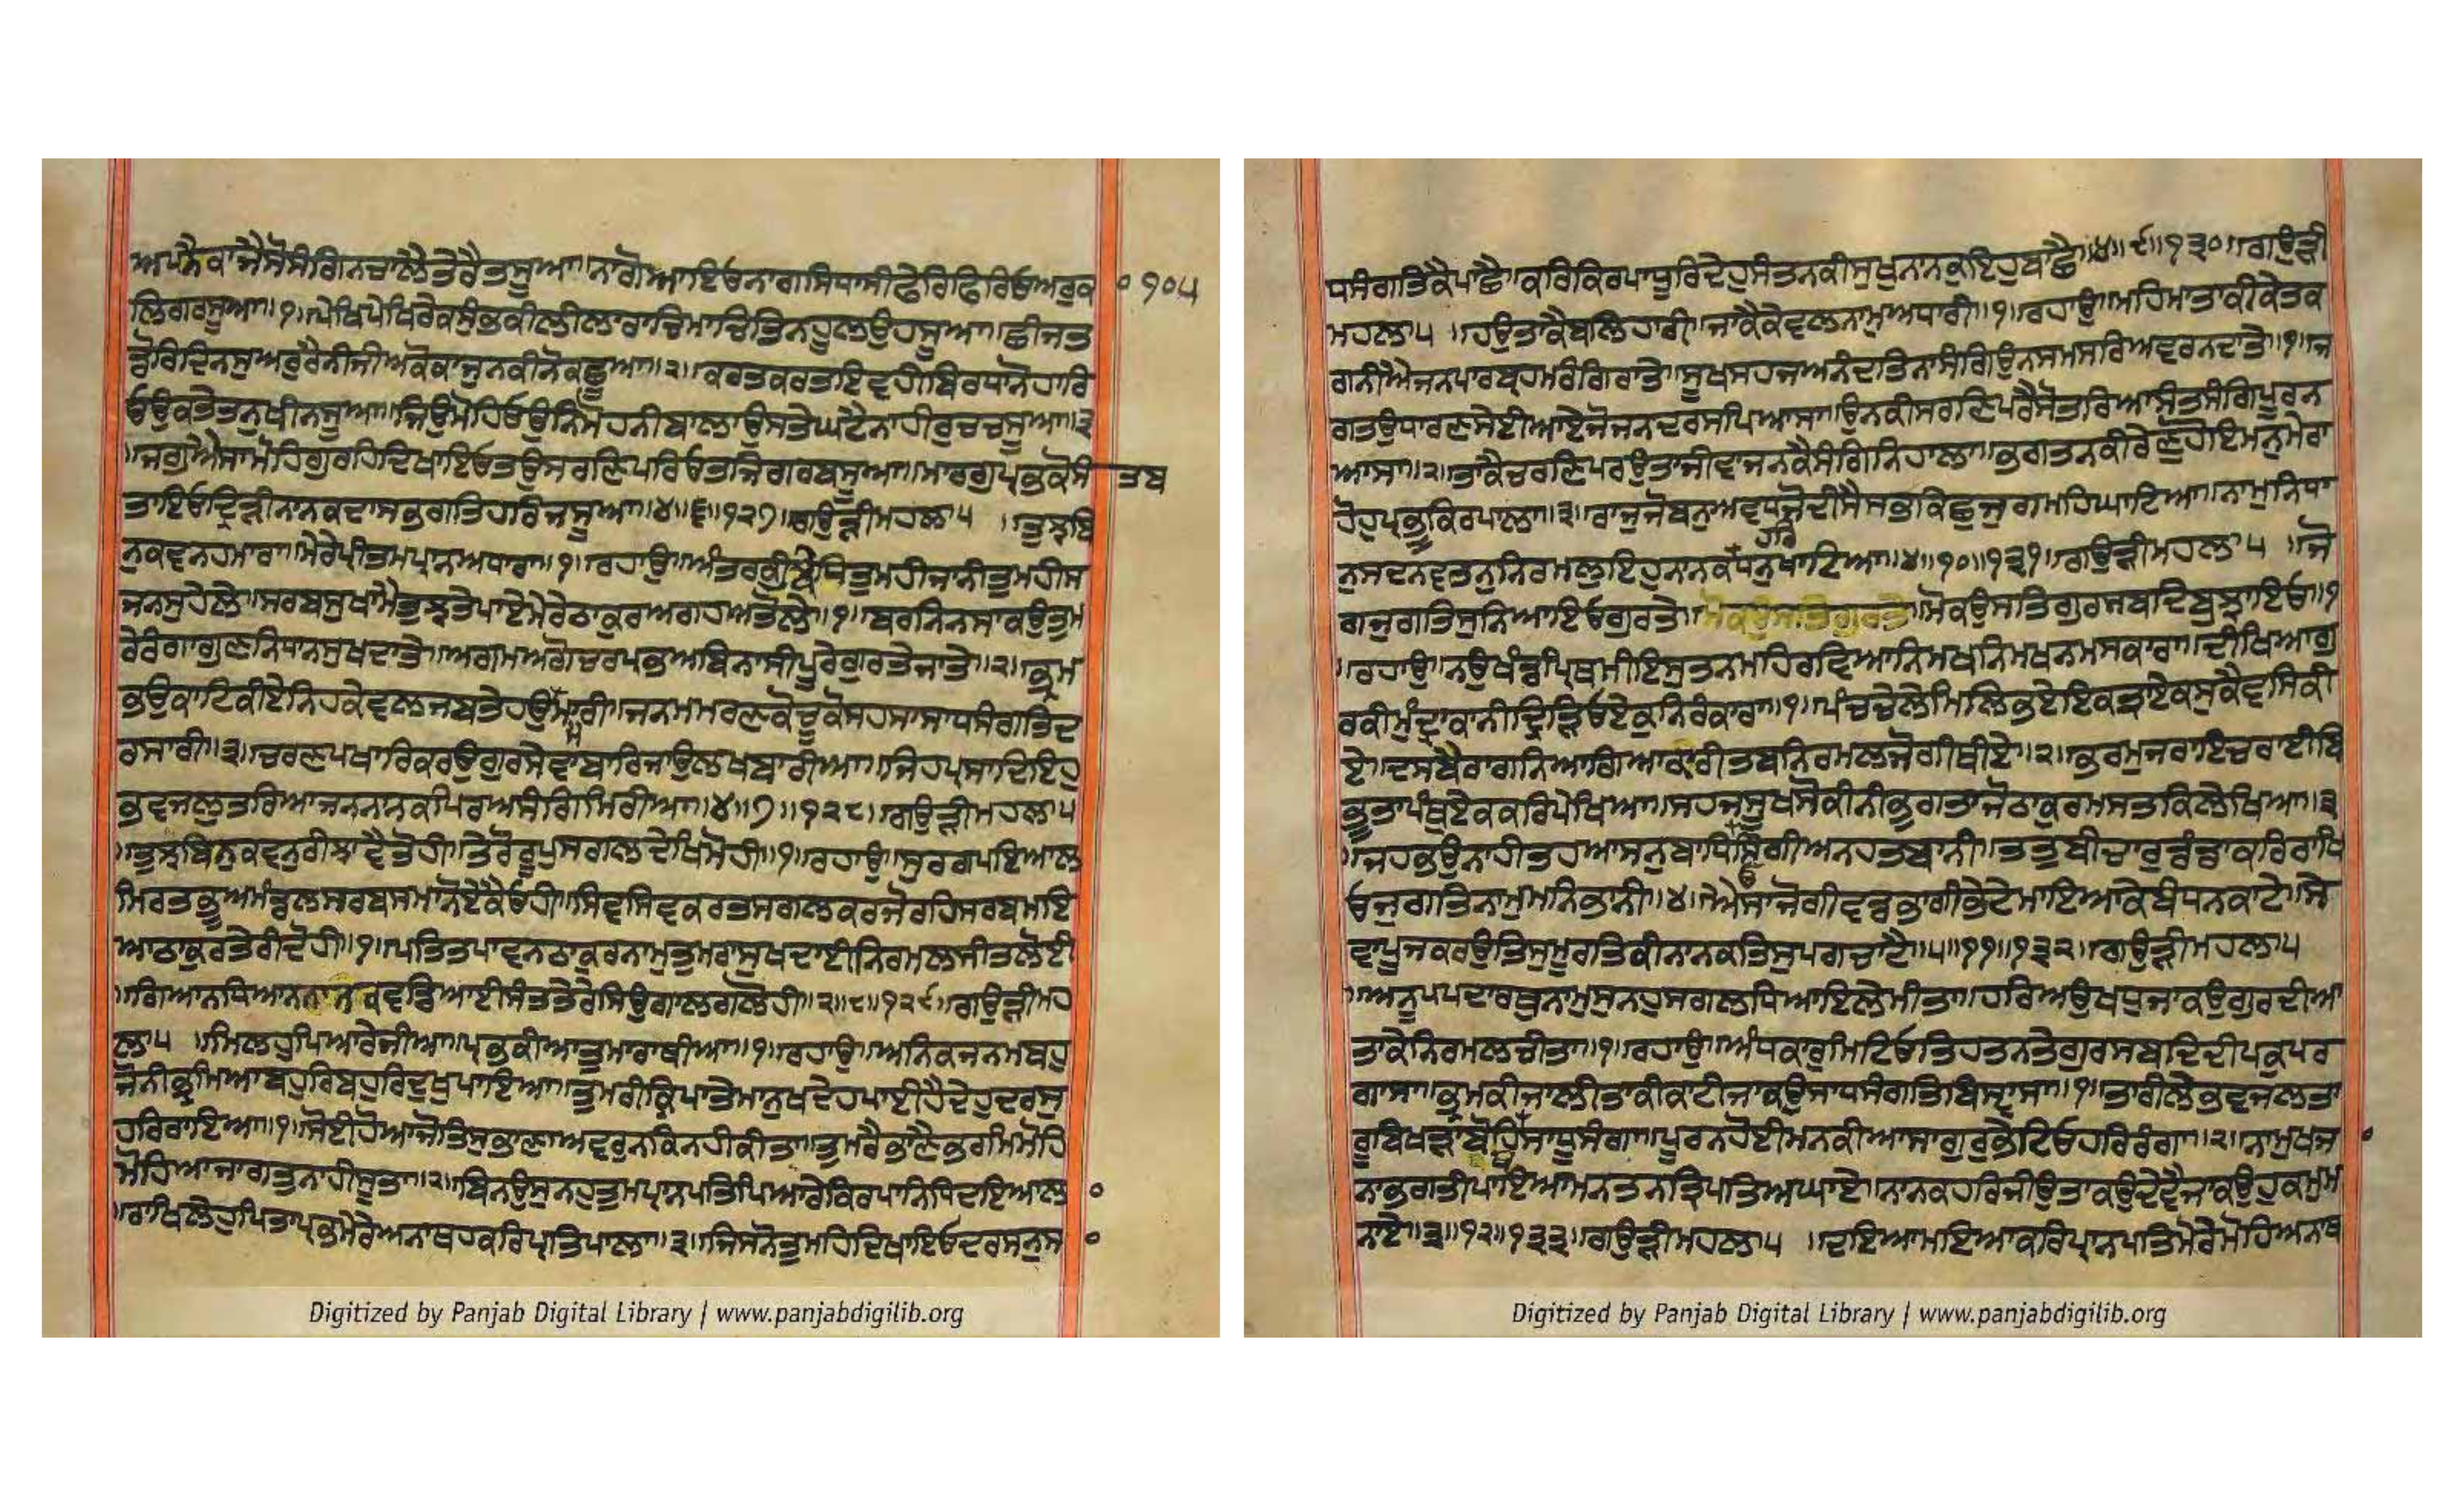 ਅਪਨੈਕਾਜੈਸੋਸੰਗਿਨਚਾਲੈਤੇਰੈਤਸੂਆ॥ਨਾਗੋਆਇਓਨਾਗਾਸਿਧਾਸੀਫੇਰਿਫਿਰਿਓਅਰੁਕ ੦੧੦੫
ਲਿਗਰਸੂਆ॥੧॥ਪੇਖਿਪੇਖਿਰੇਕਸੁੰਭਕੀਲੀਲਾਰਾਚਿਮਾਚਿਤਿਨਹੂਲਉਹਸੂਆ॥ਛੀਜਤ
ਡੋਰਿਦਿਨਸੁਅਰੁਰੈਨੀਜੀਅਕੋਕਾਜੁਨਕੀਨੋਕਛੂਆ॥੨॥ਕਰਤਕਰਤਇਵਹੀਬਿਰਧਾਨੋਹਾਰਿ
ਓਉਕਤੇਤਨੁਖੀਨਸੂਆ॥ਜਿਉਮੋਹਿਓਉਨਿਮੋਹਨੀਬਾਲਾਉਸਤੇਘਟੈਨਾਹੀਰੁਚਚਸੂਆ॥੩
॥ਜਗੁਐਸਾਮੋਹਿਗੁਰਹਿਦਿਖਾਇਓਤਉਸਰਣਿਪਰਿਓਤਜਿਗਰਬਸੂਆ॥ਮਾਰਗੁਪ੍ਰਭਕੋਸੰਤਬ
ਤਾਇਓਦ੍ਰਿੜੀਨਾਨਕਦਾਸਭਗਤਿਹਰਿਜਸੂਆ॥੪॥੬॥੧੨੭॥ਗਉੜੀਮਹਲਾ੫ ॥ਤੁਝਬਿ
ਨੁਕਵਨਹਮਾਰਾ॥ਮੇਰੇਪ੍ਰੀਤਮਪ੍ਰਾਨਅਧਾਰਾ॥੧॥ਰਹਾਉ॥ਅੰਤਰਕੀਬਿਧਿਤੁਮਹੀਜਾਨੀਤੁਮਹੀਸ
ਜਨਸੁਹੇਲੇ॥ਸਰਬਸੁਖਾਮੈਤੁਝਤੇਪਾਏਮੇਰੇਠਾਕੁਰਅਗਹਅਤੋਲੇ॥੧॥ਬਰਨਿਨਸਾਕਉਤੁਮ
ਰੇਰੰਗਾਗੁਣਨਿਧਾਨਸੁਖਦਾਤੇ॥ਅਗਮਅਗੋਚਰਪ੍ਰਭਅਬਿਨਾਸੀਪੂਰੇਗੁਰਤੇਜਾਤੇ॥੨॥ਭ੍ਰਮ
ਭਉਕਾਟਿਕੀਏਨਿਹਕੇਵਲਜਬਤੇਹਉਮੈਮਾਰੀ॥ਜਨਮਮਰਣਕੋਚੂਕੋਸਹਸਾਸਾਧਸੰਗਤਿਦ
ਰਸਾਰੀ॥੩॥ਚਰਣਪਖਾਰਿਕਰਉਗੁਰਸੇਵਾਬਾਰਿਜਾਉਲਖਬਾਰੀਆ॥ਜਿਹਪ੍ਰਸਾਦਿਇਹੁ
ਭਵਜਲੁਤਰਿਆਜਨਨਾਨਕਪ੍ਰਿਅਸੰਗਿਮਿਰੀਆ॥੪॥੭॥੧੨੮॥ਗਉੜੀਮਹਲਾ੫
॥ਤੁਝਬਿਨੁਕਵਨੁਰੀਝਾਵੈਤੋਹੀ॥ਤੇਰੋਰੂਪੁਸਗਲਦੇਖਿਮੋਹੀ॥੧॥ਰਹਾਉ॥ਸੁਰਗਪਇਆਲ
ਮਿਰਤਭੂਅਮੰਡਲਸਰਬਸਮਾਨੋਏਕੈਓਹੀ॥ਸਿਵਸਿਵਕਰਤਸਗਲਕਰਜੋਰਹਿਸਰਬਮਇ
ਆਠਾਕੁਰਤੇਰੀਦੋਹੀ॥੧॥ਪਤਿਤਪਾਵਨਠਾਕੁਰਨਾਮੁਤੁਮਰਾਸੁਖਦਾਈਨਿਰਮਲਸੀਤਲੋਹੀ
॥ਗਿਆਨਧਿਆਨਨਾਨਕਵਡਿਆਈਸੰਤਤੇਰੇਸਿਉਗਾਲਗਲੋਹੀ॥੨॥੮॥੧੨੯॥ਗਉੜੀਮਹ
ਲਾ੫ ॥ਮਿਲਹੁਪਿਆਰੇਜੀਆ॥ਪ੍ਰਭਕੀਆਤੁਮਾਰਾਥੀਆ॥੧॥ਰਹਾਉ॥ਅਨਿਕਜਨਮਬਹੁ
ਜੋਨੀਭ੍ਰਮਿਆਬਹੁਰਿਬਹੁਰਿਦੁਖੁਪਾਇਆ॥ਤੁਮਰੀਕ੍ਰਿਪਾਤੇਮਾਨੁਖਦੇਹਪਾਈਹੈਦੇਹੁਦਰਸੁ
ਹਰਿਰਾਇਆ॥੧॥ਸੋਈਹੋਆਜੋਤਿਸੁਭਾਣਾਅਵਰੁਨਕਿਨਹੀਕੀਤਾ॥ਤੁਮਰੈਭਾਣੈਭਰਮਿਮੋਹਿ
ਮੋਹਿਆਜਾਗਤੁਨਾਹੀਸੂਤਾ॥੨॥ਬਿਨਉਸੁਨਹੁਤੁਮਪ੍ਰਾਨਪਤਿਪਿਆਰੇਕਿਰਪਾਨਿਧਿਦਇਆਲਾ੦
॥ਰਾਖਿਲੇਹੁਪਿਤਾਪ੍ਰਭਮੇਰੇਅਨਾਥਹਕਰਿਪ੍ਰਤਿਪਾਲਾ॥੩॥ਜਿਸਨੋਤੁਮਹਿਦਿਖਾਇਓਦਰਸਨੁਸ ੦
Digitized by Panjab Digital Library | www.panjabdigilib.org
ਧਸੰਗਤਿਕੈਪਾਛੈ॥ਕਰਿਕਿਰਪਾਧੂਰਿਦੇਹੁਸੰਤਨਕੀਸੁਖੁਨਾਨਕੁਇਹੁਬਾਛੈ॥੪॥੯॥੧੩੦॥ਗਉੜੀ
ਮਹਲਾ੫ ॥ਹਉਤਾਕੈਬਲਿਹਾਰੀ॥ਜਾਕੈਕੇਵਲਨਾਮੁਅਧਾਰੀ॥੧॥ਰਹਾਉ॥ਮਹਿਮਾਤਾਕੀਕੇਤਕ
ਗਨੀਐਜਨਪਾਰਬ੍ਰਹਮਰੰਗਿਰਾਤੇ॥ਸੂਖਸਹਜਅਨੰਦਤਿਨਾਸੰਗਿਉਨਸਮਸਰਿਅਵਰਨਦਾਤੇ॥੧॥ਜ
ਗਤਉਧਾਰਣਸੇਈਆਏਜੋਜਨਦਰਸਪਿਆਸਾ॥ਉਨਕੀਸਰਣਿਪਰੈਸੋਤਰਿਆਸੰਤਸੰਗਿਪੂਰਨ
ਆਸਾ॥੨॥ਤਾਕੈਚਰਣਿਪਰਉਤਾਜੀਵਾਜਨਕੈਸੰਗਿਨਿਹਾਲਾ॥ਭਗਤਨਕੀਰੇਣੁਹੋਇਮਨੁਮੇਰਾ
ਹੋਹੁਪ੍ਰਭੂਕਿਰਪਾਲਾ॥੩॥ਰਾਜੁਜੋਬਨੁਅਵਧਜੋਦੀਸੈਸਭੁਕਿਛੁਜੁਗਮਹਿਘਾਟਿਆ॥ਨਾਮੁਨਿਧਾ
ਨੁਸਦਨਵਤਨੁਨਿਰਮਲੁਇਹੁਨਾਨਕਹਰਿਧਨੁਖਾਟਿਆ॥੪॥੧੦॥੧੩੧॥ਗਉੜੀਮਹਲਾ੫ ॥ਜੋ
ਗਜੁਗਤਿਸੁਨਿਆਇਓਗੁਰਤੇ॥ਮੋਕਉਸਤਿਗੁਰਤੇ॥ਮੋਕਉਸਤਿਗੁਰਸਬਦਿਬੁਝਾਇਓ॥੧
॥ਰਹਾਉ॥ਨਉਖੰਡਪ੍ਰਿਥਮੀਇਸੁਤਨਮਹਿਰਵਿਆਨਿਮਖਨਿਮਖਨਮਸਕਾਰਾ॥ਦੀਖਿਆਗੁ
ਰਕੀਮੁੰਦ੍ਰਾਕਾਨੀਦ੍ਰਿੜਿਓਏਕੁਨਿਰੰਕਾਰਾ॥੧॥ਪੰਚਚੇਲੇਮਿਲਿਭਏਇਕਤ੍ਰਾਏਕਸੁਕੈਵਸਿਕੀ
ਏ॥ਦਸਬੈਰਾਗਨਿਆਗਿਆਕਾਰੀਤਬਨਿਰਮਲਜੋਗੀਥੀਏ॥੨॥ਭਰਮੁਜਰਾਇਚਰਾਈਬਿ
ਭੂਤਾਪੰਥੁਏਕਕਰਿਪੇਖਿਆ॥ਸਹਜਸੂਖਸੋਕੀਨੀਭੁਗਤਾਜੋਠਾਕੁਰਮਸਤਕਿਲੇਖਿਆ॥੩
॥ਜਹਭਉਨਾਹੀਤਹਾਆਸਨੁਬਾਧਿਓਸਿੰਗੀਅਨਹਤਬਾਨੀ॥ਤਤੁਬੀਚਾਰੁਡੰਡਾਕਰਿਰਾਖਿ
ਓਜੁਗਤਿਨਾਮੁਮਨਿਭਾਨੀ॥੪॥ਐਸਾਜੋਗੀਵਡਭਾਗੀਭੇਟੇਮਾਇਆਕੇਬੰਧਨਕਾਟੇ॥ਸੇ
ਵਾਪੂਜਕਰਉਤਿਸੁਮੂਰਤਿਕੀਨਾਨਕਤਿਸੁਪਗਚਾਟੈ॥੫॥੧੧॥੧੩੨॥ਗਉੜੀਮਹਲਾ੫
॥ਅਨੂਪਪਦਾਰਥੁਨਾਮੁਸੁਨਹੁਸਗਲਧਿਆਇਲੇਮੀਤਾ॥ਹਰਿਅਉਖਧੁਜਾਕਉਗੁਰਦੀਆ
ਤਾਕੇਨਿਰਮਲਚੀਤਾ॥੧॥ਰਹਾਉ॥ਅੰਧਕਾਰੁਮਿਟਿਓਤਿਹਤਨਤੇਗੁਰਸਬਦਿਦੀਪਕੁਪਰ
ਗਾਸਾ॥ਭ੍ਰਮਕੀਜਾਲੀਤਾਕੀਕਾਟੀਜਾਕਉਸਾਧਸੰਗਤਿਬਿਸ੍ਵਾਸਾ॥੧॥ਤਾਰੀਲੇਭਵਜਲਤਾ
ਰੂਬਿਖੜਾਬੋਹਿਥਸਾਧੂਸੰਗਾ॥ਪੂਰਨਹੋਈਮਨਕੀਆਸਾਗੁਰੁਭੇਟਿਓਹਰਿਰੰਗਾ॥੨॥ਨਾਮਖਜ
ਨਾਭਗਤੀਪਾਇਆਮਨਤਨਤ੍ਰਿਪਤਿਅਘਾਏ॥ਨਾਨਕਹਰਿਜੀਉਤਾਕਉਦੇਵੈਜਾਕਉਹੁਕਮੁਮ
ਨਾਏ॥੩॥੧੨॥੧੩੩॥ਗਉੜੀਮਹਲਾ੫ ॥ਦਇਆਮਇਆਕਰਿਪ੍ਰਾਨਪਤਿਮੋਰੈਮੋਹਿਅਨਾਥ
Digitized by Panjab Digital Library | www.panjabdigilib.org